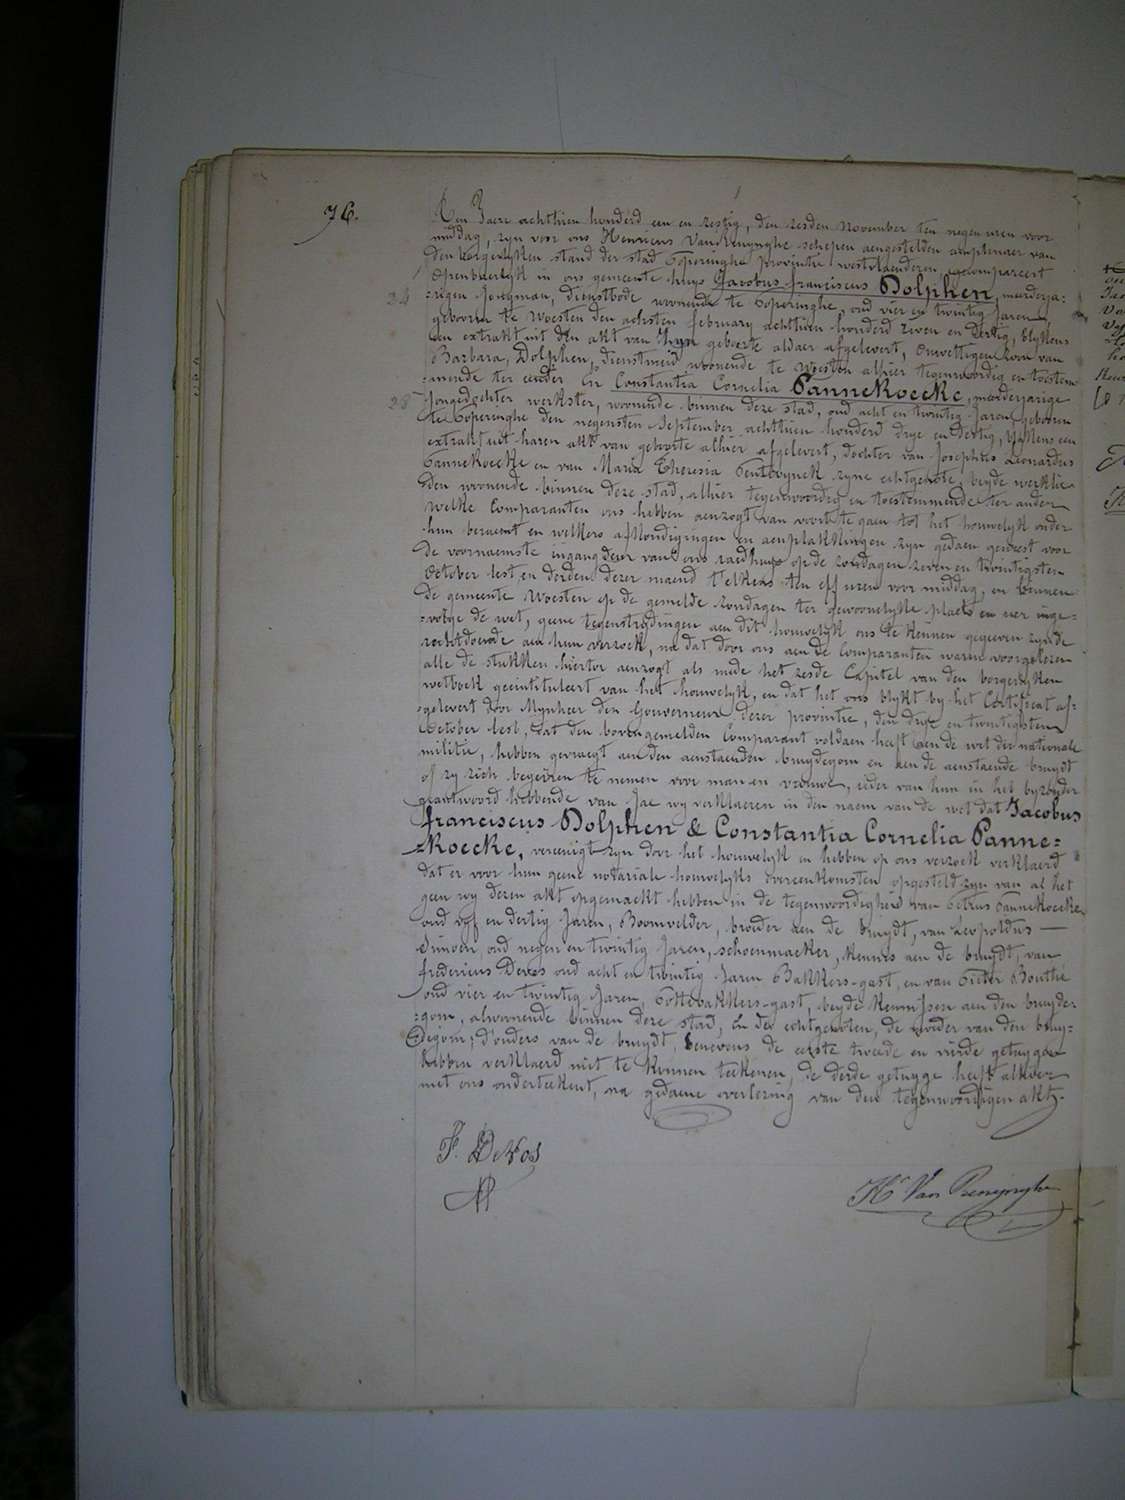 76.
Den Jaere achthien honderd een en zestig, den zesden November ten negen uren voor
middag, zyn voor ons Henricus Van Renynghe schepen aengestelden amptenaer van
den borgerlyken stand der stad Poperinghe provintie westvlaenderen, gecompareert
openbaerlyk in ons gemeente huys Jacobus franciscus Dolphen, meerderja=
24
=rigen Jongman, dienstbode woonende te Poperinghe, oud vier en twintig Jaren
geboren te Woesten den achsten february achthien honderd zeven en dertig, blykens
een extrakt uit den akt van zyn geboorte aldaer afgelevert, onwettigen zoon van
Barbara, Dolphen, dienstmeid woonende te Woesten alhier tegenwoordig en toestem=
=mende ter eender En Constantia Cornelia Pannekoecke, meerderjarige
28
Jongedochter werkster, woonende binnen deze stad, oud acht en twintig Jaren geboren
te Poperinghe den negensten September achthien honderd drye en dertig, blykens een
extrakt uit haren akt van geboorte alhier afgelevert, dochter van Josephus Leonardus
Pannekoecke en van Maria Theresia zyne echtgenote, beyde werklie=
den woonende binnen deze stad, alhier tegenwoordig en toestemmende ter ander
welke Comparanten ons hebben aenzogt van voort te gaen tot het houwelyk onder
hun beraemt en welkers afkondigingen en aenplakkingen zyn gedaen geweest voor
de voornaemste ingangdeur van ons raedhuys op de zondagen zeven en twintigsten
October lest en derden dezer maend t'elkens ten elf uren voor middag, en binnen
de gemeente Woesten op de gemelde zondagen ter gewoonelyke plaets en uer inge=
=volge de wet, geene tegenstrydingen aen dit houwelyk ons te kennen gegeven zynde
rechtdoende aen hun verzoek, na dat door ons aen de Comparanten waren voorgelezen
alle de stukken hiertoe aenzogt als mede het zesde Capitel van den borgerlyken
wetboek geintituleert van het houwelyk, en dat het ons blykt by het Certificat af=
=gelevert door Mynheer den Gouverneur dezer provintie, den drye en twintigsten
October lest, dat den bovengemelden Comparant voldaen heeft aen de wet der nationale
militie, hebben gevraegt aen den aenstaenden bruydegom en aen de aenstaende bruydt
of zy zich begeiren te nemen voor man en vrouwe, ieder van hun in het byzonder
geantwoord hebbende van Jae wy verklaeren in den naem van de wet dat Jacobus
franciscus Dolphen & Constantia Cornelia Panne=
=koecke, vereenigt zyn door het houwelyk en hebben op ons verzoek verklaerd
dat er voor hun geene notariale houwelyks overeenkomsten opgesteld zyn van al het
geen wy dezen akt opgemaekt hebben in de tegenwoordigheid van Petrus Pannekoecke
oud vyf en dertig Jaren, Boomvelder, broeder aen de bruydt, van Leopoldus —
Simoen, oud negen en twintig Jaren, schoenmaeker, kennis aen de bruydt, van
fredericus Devos oud acht en twintig Jaren Bakkers-gast, en van Pieter Bouthé
oud vier en twintig Jaren, Pottebakkers-gast, beyde kennissen aen den bruyde=
=gom, alwoonende binnen deze stad, En de echtgenoten, de moeder van den bruy=
degom, d'ouders van de bruydt, benevens de eerste tweede en vierde getuygen
hebben verklaerd niet te kunnen teekenen, de derde getuyge heeft alhier
met ons onderteekent, na gedaene voorlezing van den tegenwoordigen akt.
F. DeVos
Hri Van Renynghe